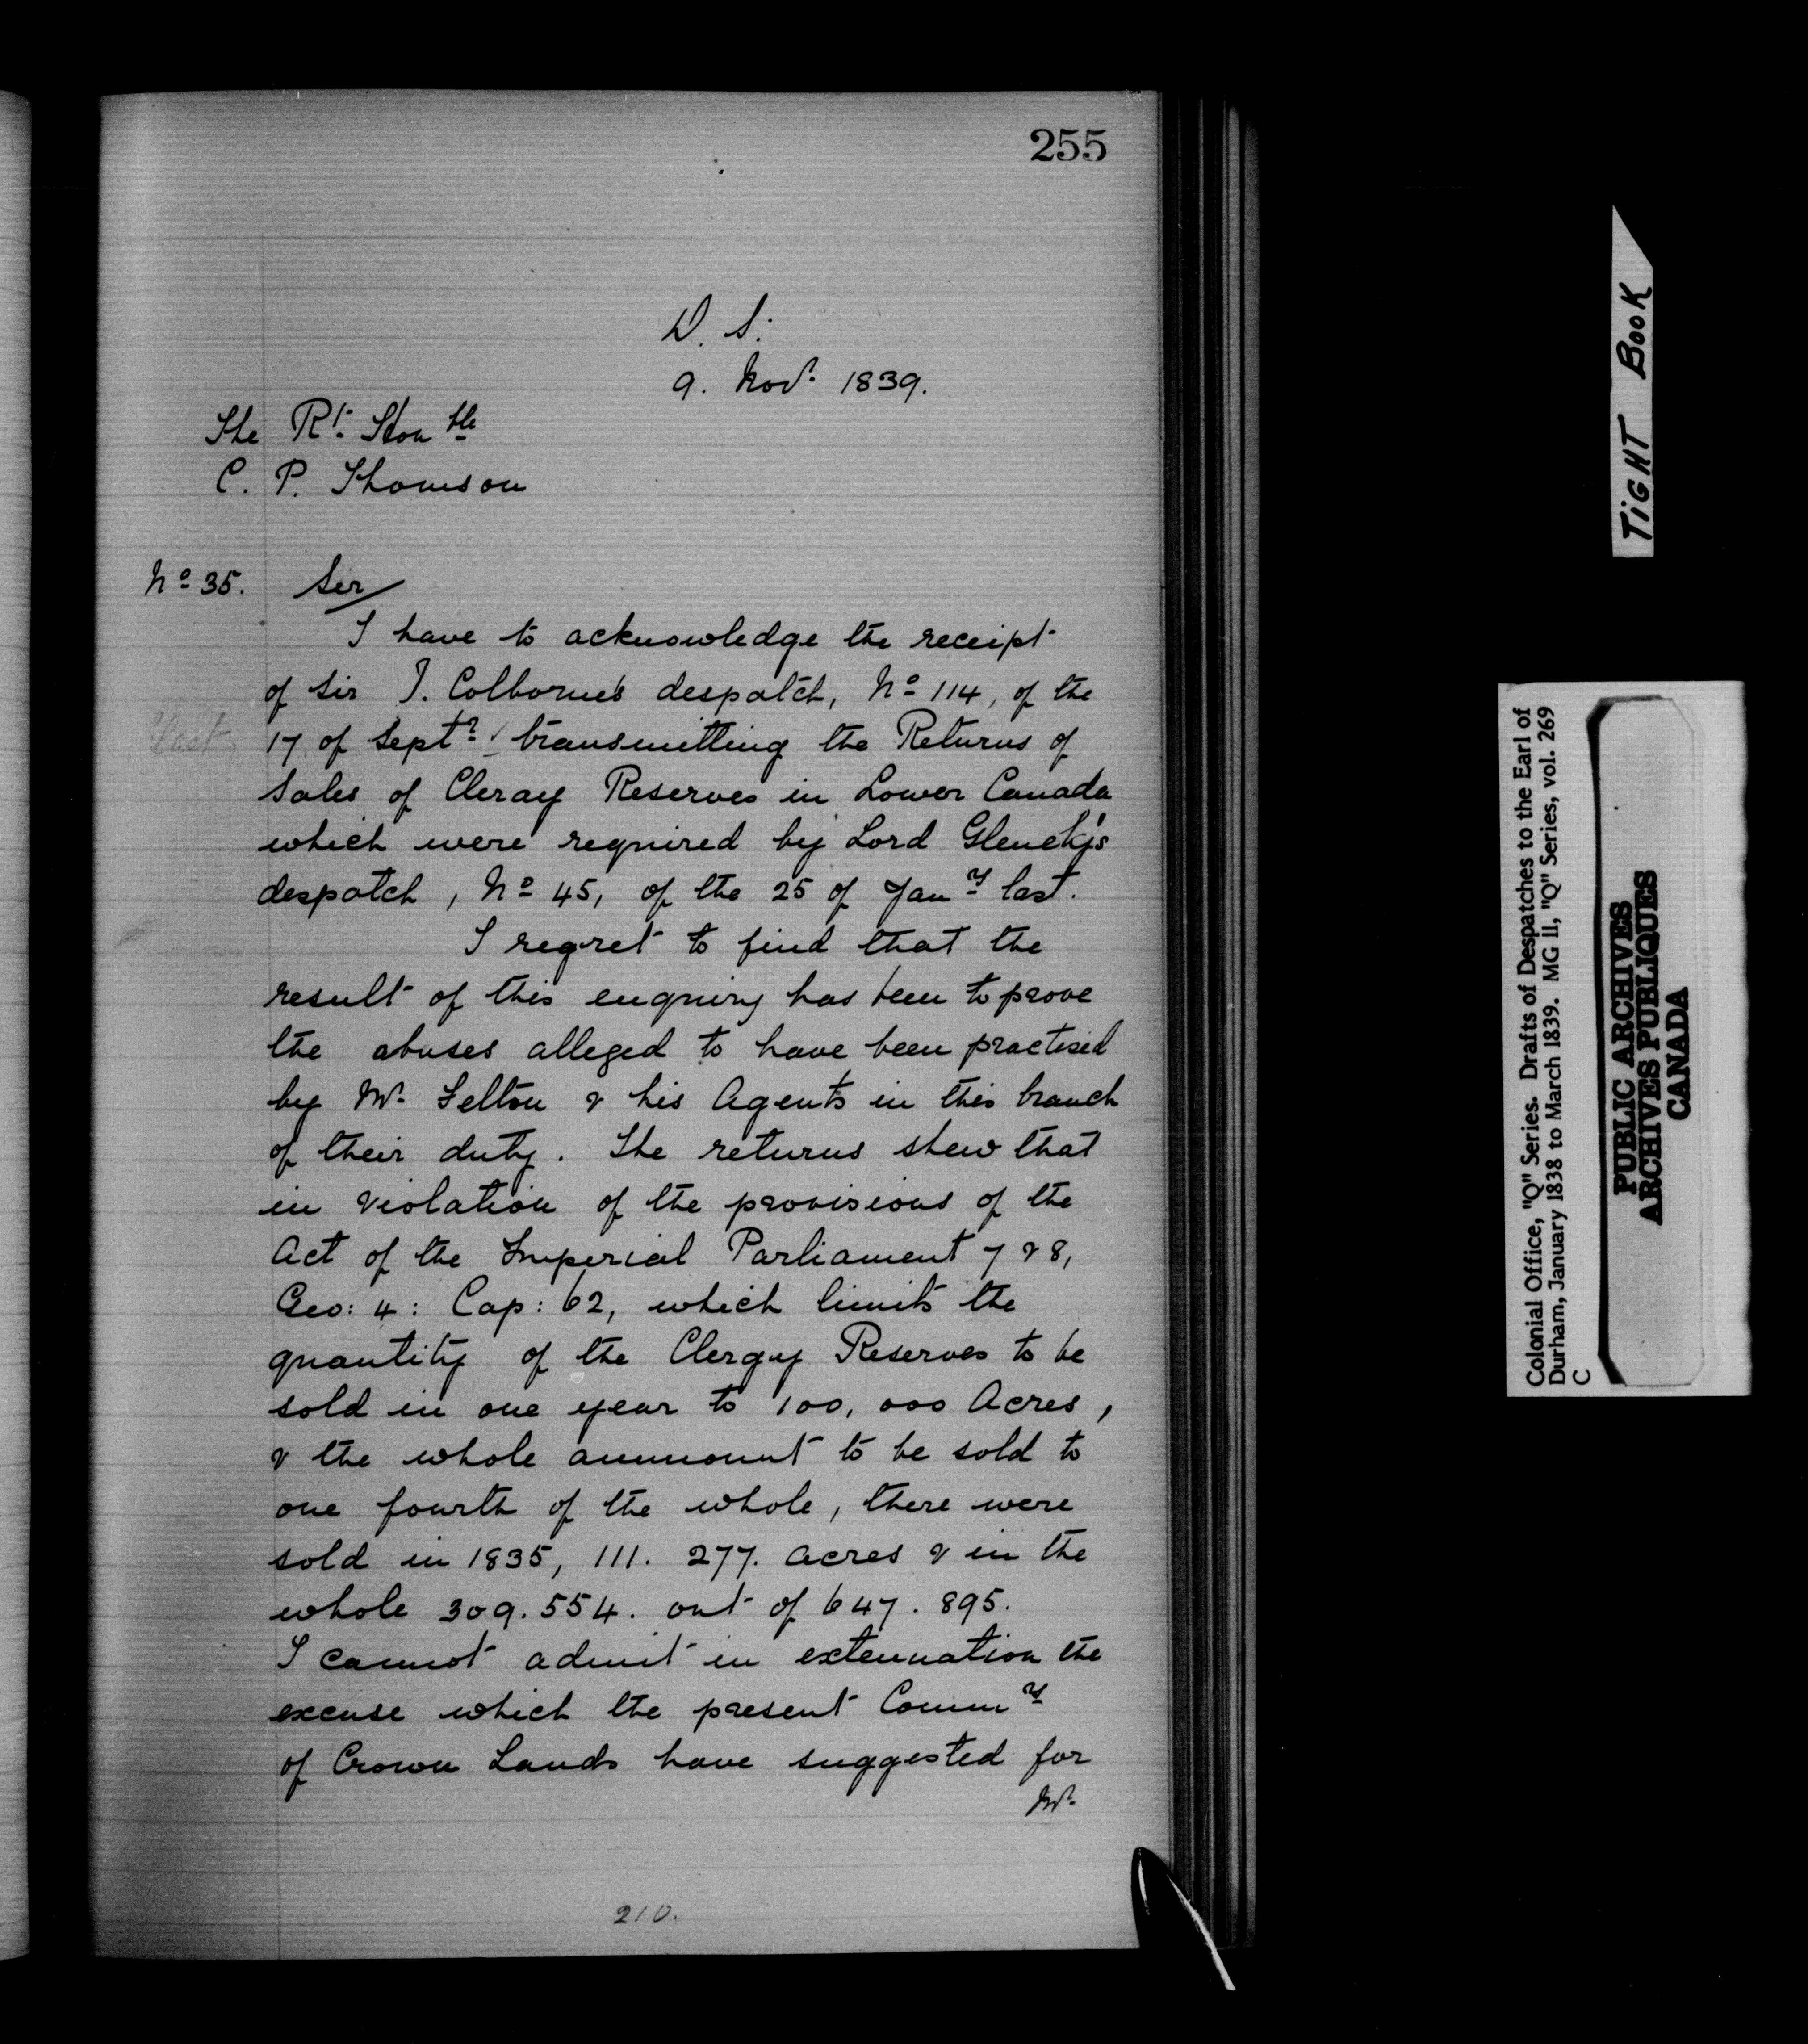 255
D. S:
9. Novr. 1839.
The Rt. Honble
C. P. Thomson
No 35. Sir
I have to acknowledge the receipt
of Sir J. Colborne's despatch, No 114, of the
last, 17 of Septr. transmitting the Returns of
Sales of Clergy Reserves in Lower Canada
which were required by Lord Glenelg's
despatch, No 45, of the 25 of Jany last.
I regret to find that the
result of this enquiry has been to prove
the abuses alleged to have been practised
by Mr. Felton & his Agents in this branch
of their duty. The returns shew that
in violation of the provisions of the
Act of the Imperial Parliament 7 & 8,
Geo: 4: Cap: 62, which limits the
quantity of the Clergy Reserves to be
sold in one year to 100,000 Acres,
& the whole ammount to be sold to
one fourth of the whole, there were
sold in 1835, 111. 277. acres & in the
whole 309.554. out of 647.895.
I cannot admit in extenuation the
excuse which the present Commy
of Crown Lands have suggested for
Mr.
210.
TiGHT BooK
Colonial Office, "Q" Series. Drafts of Despatches to the Earl of
Durham, January 1838 to March 1839. MG 11, "Q" Series, vol. 269
C
PUBLIC ARCHIVES
ARCHIVES PUBLIQUES
CANADA